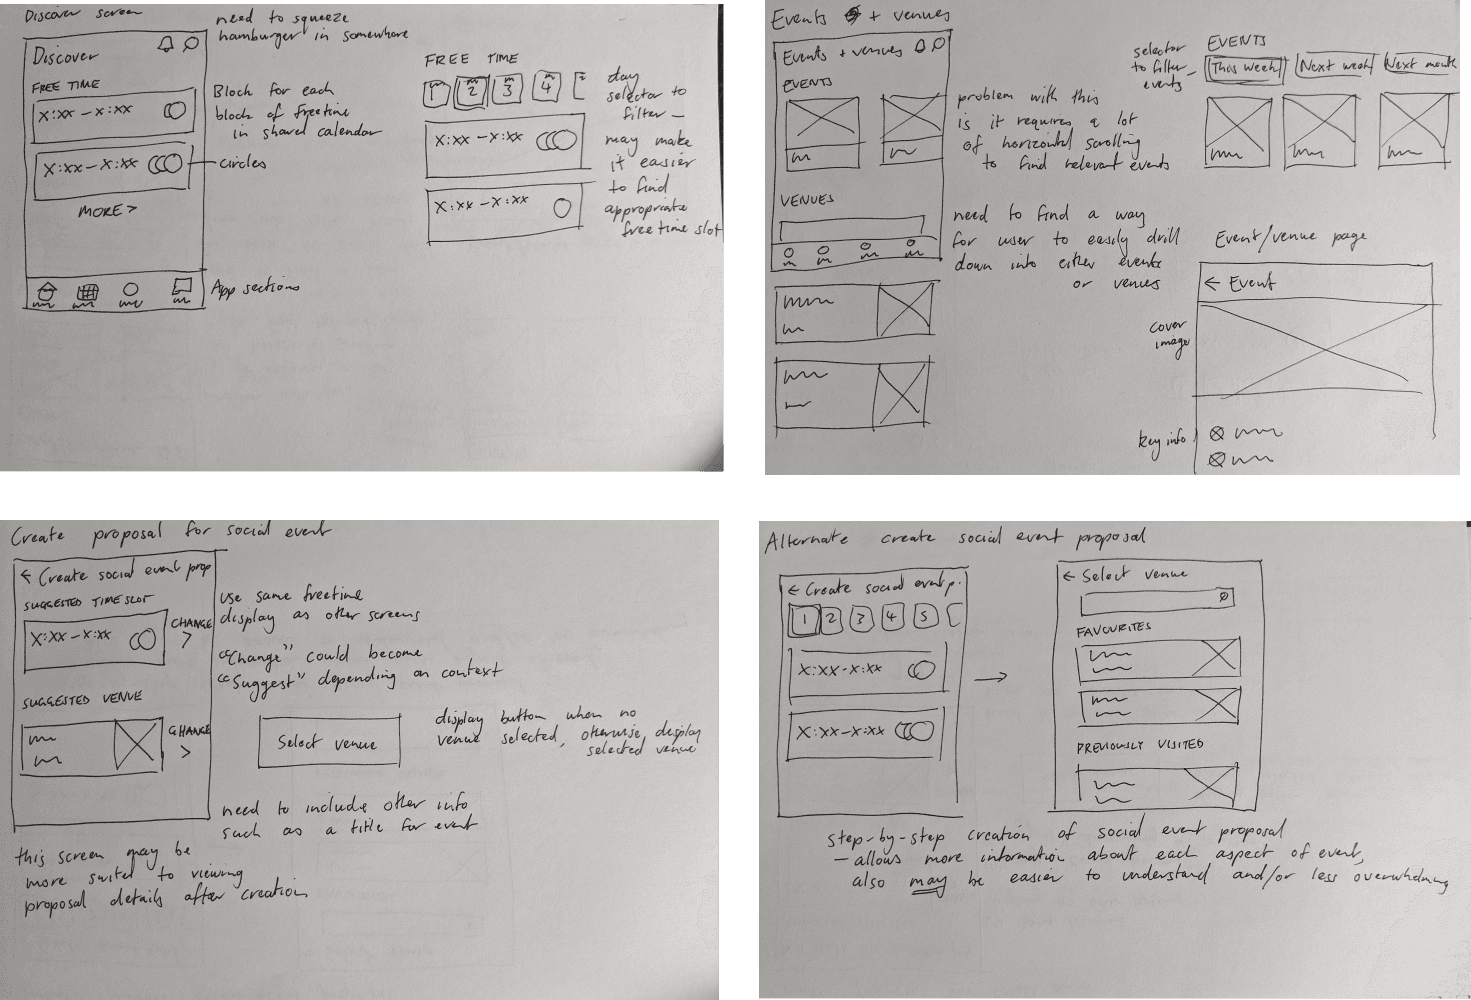 Discover screen
need to squeeze
hamburger in somewhere
Discover
FREE TIME
X:XX - X:XX
X:XX - X:XX
MORE >
Block for each
block of freetime
in shared calendar
circles
App sections
FREE TIME
1 2 3 4
X:XX - X:XX
X:XX - X:XX
day
selector to
filter -
may make
it easier
to find
appropriate
free time slot
Events + venues
Events + venues
EVENTS
VENUES
problem with this
is it requires a lot
of horizontal scrolling
to find relevant events
need to find a way
for user to easily drill
down into either events
or venues
selector
to filter
events
EVENTS
This week Next week Next month
Event/venue page
← Event
cover
image
key info
Create proposal for social event
← Create social event prop
SUGGESTED TIME SLOT
X:XX - X:XX
CHANGE
>
SUGGESTED VENUE
CHANGE
>
use same freetime
display as other screens
"Change" could become
"Suggest" depending on context
Select venue
display button when no
venue selected, otherwise display
selected venue
need to include other info
such as a title for event
this screen may be
more suited to viewing
proposal details after creation
Alternate create social event proposal
← Create social event p.
1 2 3 4 5
X:XX - X:XX
X:XX - X:XX
→
← Select venue
FAVOURITES
PREVIOUSLY VISITED
step-by-step creation of social event proposal
- allows more information about each aspect of event,
also may be easier to understand and/or less overwhelming